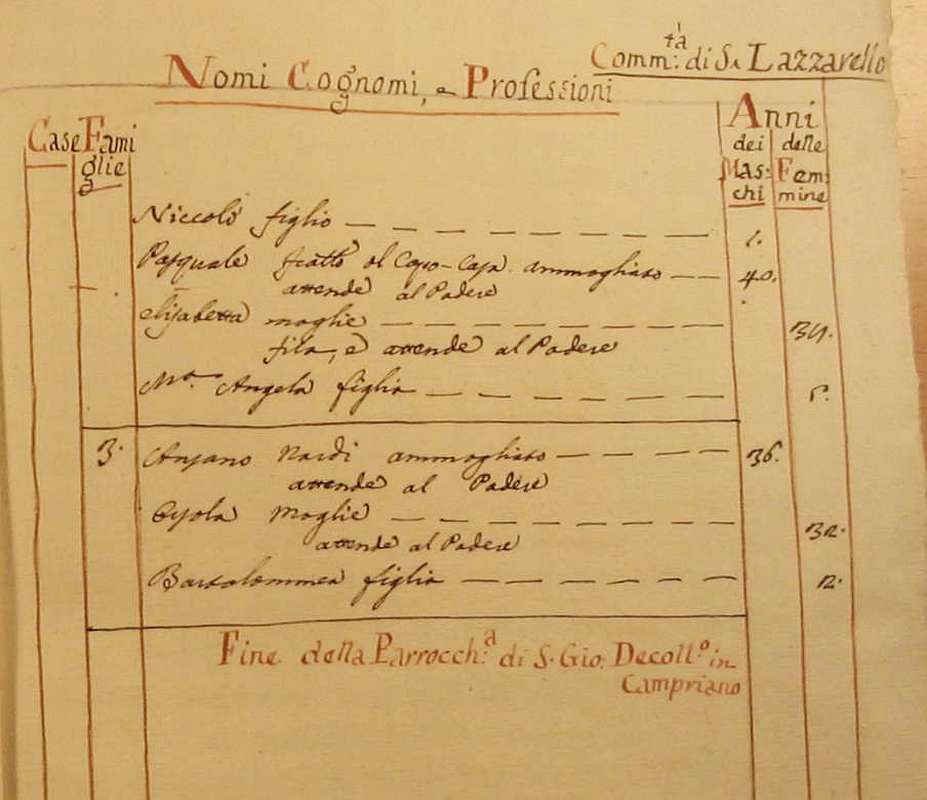 Comm:tà di S. Lazzarello
Nomi Cognomi, e Professioni
Anni
Case Fami
glie
dei delle
Mas: Fem:
chi mine
Niccolò figlio — — — — — — 1.
Pasquale fratto del Capo-Casa ammogliato — — 40.
attende al Podere
Elisabetta moglie — — — — — — — 34.
fila, e attende al Podere
Ma. Angela figlia — — — — — —
3. Ansano Nardi ammogliato — — — — 36.
attende al Podere
moglie — — — — — — — 32.
attende al Podere
Bartolommea figlia — — — — — — 12.
Fine della Parrocch:a di S. Gio: Decoll.o in
Campriano